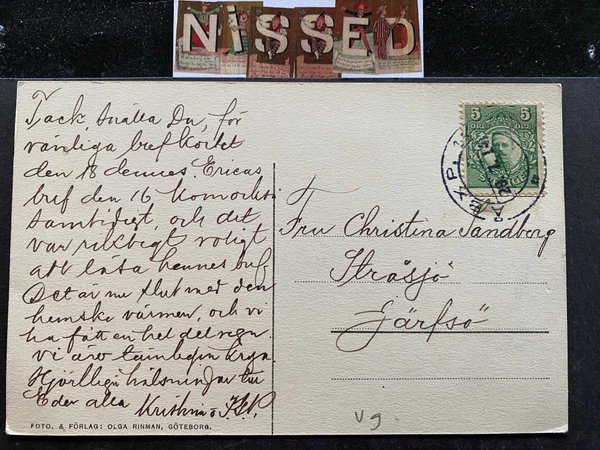 NiSSED
Tack snälla Du, för
vänliga brefkortet
den 18 dennes, Ericas
bref den 16 kom också
samtidigt, och det
var riktigt roligt
att läsa hennes bref
Det är nu slut med den
hemska värmen, och vi
ha fått en hel del regn
vi äro
Hjärtliga hälsningar till
Eder alla Kristina o
FOTO. & FÖRLAG: OLGA RINMAN, GÖTEBORG.
5 5
ÖRE ÖRE
EXP.
Fru Christina Sandberg
Stråsjö
Järfsö
Vg.